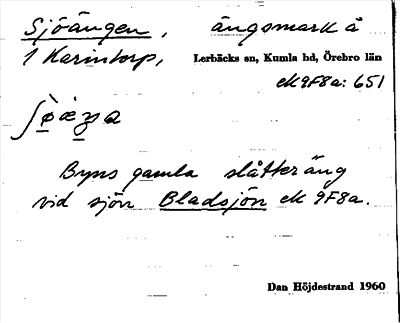 Sjöängen, ängsmark å
1 Karintorp, Lerbäcks sn, Kumla hd, Örebro län
ek 9F8a: 651
Byns gamla slåtteräng
vid sjön Bladsjön ek 9F8a.
Dan Höjdestrand 1960